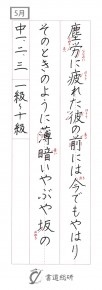 5月
塵労に疲れた彼の前には今でもやはり
そのときのように薄暗いやぶや坂の
中、二・三 一級〜十級
書道総研